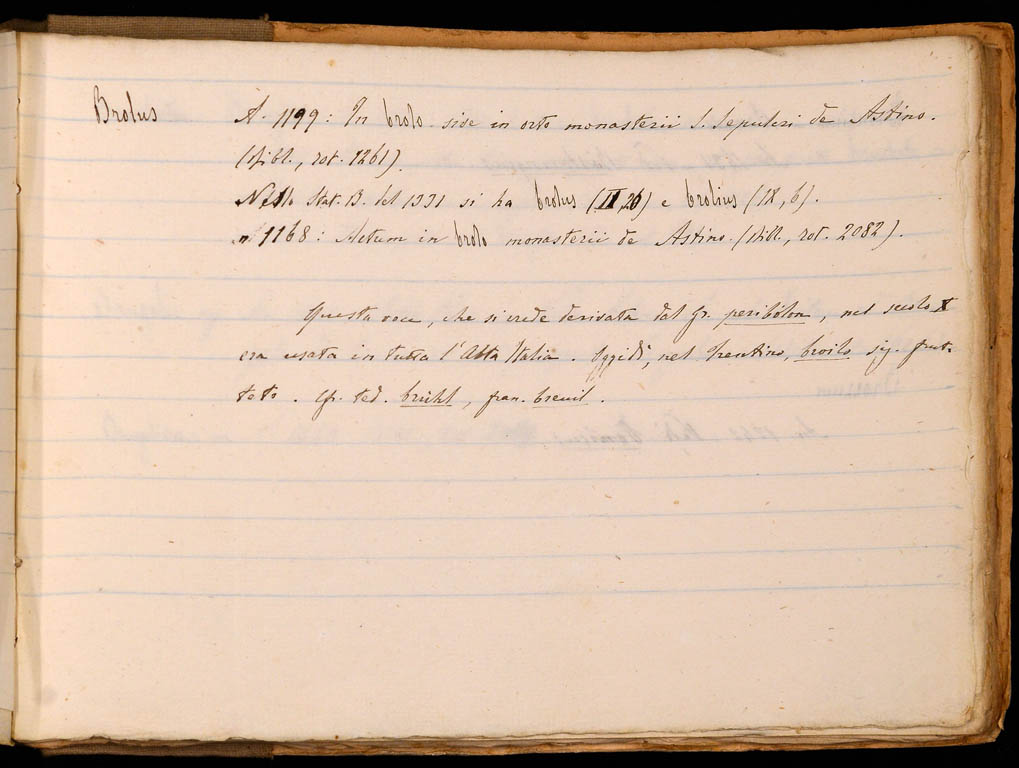 Brolus A. 1199: In brolo sive in orto monasterii S. Sepulcri de Astino.
(Bibl., rot. 1261).
Nello Stat. B. del 1331 si ha brolus (II, 26) e brolius (IX, 6).
1168: Actum in brolo monasterii de Astino. (Bibl., rot. 2082).
Questa voce, che si crede derivata dal gr. peribolon, nel secolo X
era usata in tutta l'Alta Italia. Oggidì, nel Trentino, broilo sig. frut-
teto. Cfr. ted. brühl, fran. breuil.